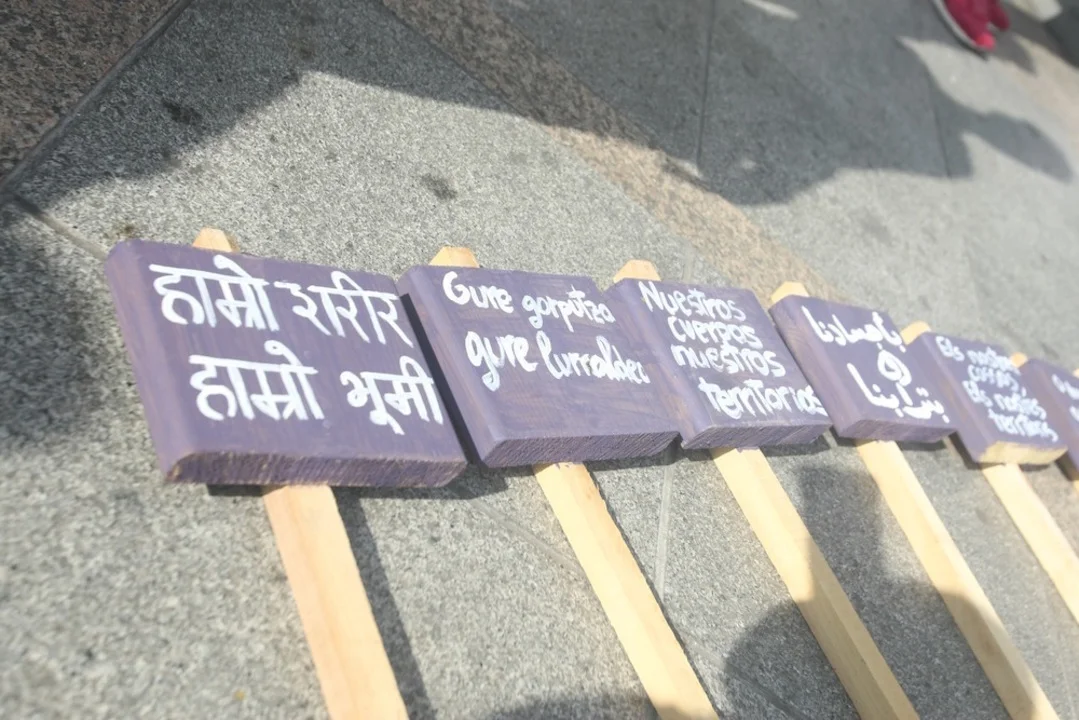 हाम्रो शरीर
हाम्रो भूमी
Gure gorputza
gure lurraldea
Nuestros
cuerpos
nuestros
territorios
Els nostres
cossos
Els nostres
territoris